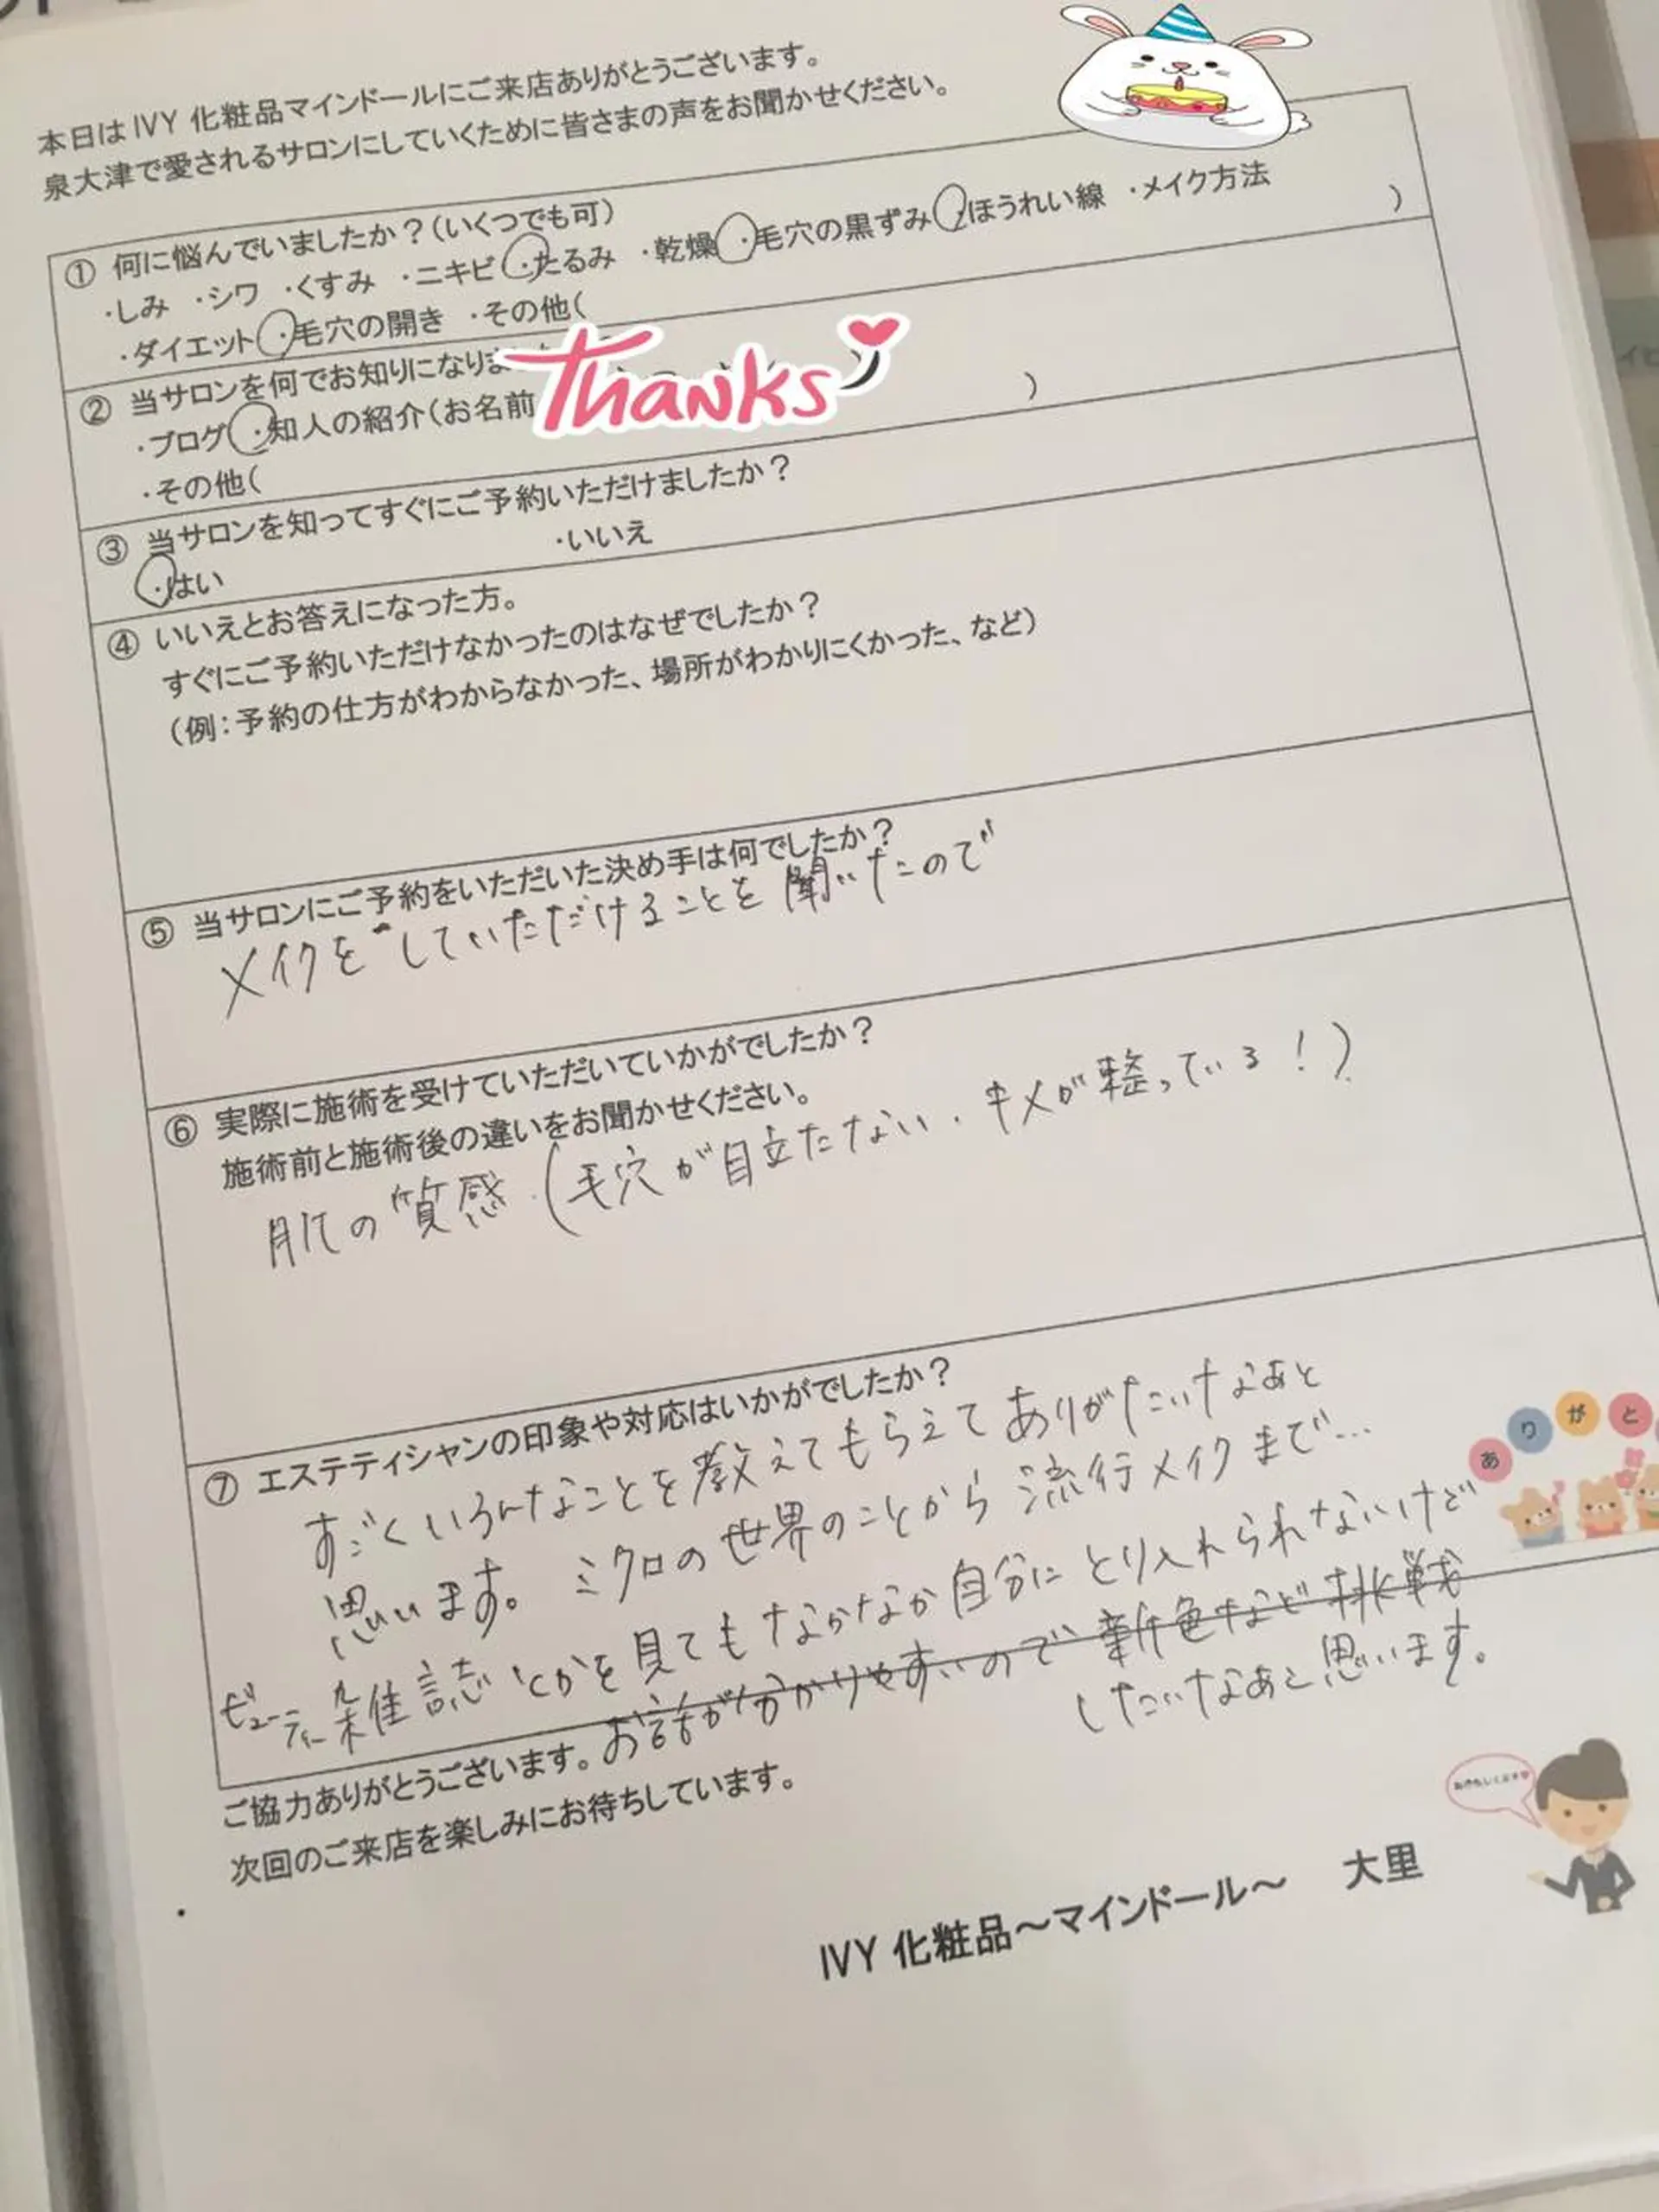 本日は IVY 化粧品マインドールにご来店ありがとうございます。
泉大津で愛されるサロンにしていくために皆さまの声をお聞かせください。
① 何に悩んでいましたか?(いくつでも可)
・しみ ・シワ ・くすみ ・ニキビ ・たるみ ・乾燥 ・毛穴の黒ずみ ・ほうれい線 ・メイク方法
・ダイエット ・毛穴の開き ・その他( )
② 当サロンを何でお知りになりま
・ブログ ・知人の紹介(お名前
Thanks
・その他( )
③ 当サロンを知ってすぐにご予約いただけましたか?
・はい ・いいえ
④ いいえとお答えになった方。
すぐにご予約いただけなかったのはなぜでしたか?
(例:予約の仕方がわからなかった、場所がわかりにくかった、など)
⑤ 当サロンにご予約をいただいた決め手は何でしたか?
メイクをしていただけることを聞いたので
⑥ 実際に施術を受けていただいていかがでしたか?
施術前と施術後の違いをお聞かせください。
肌の質感(毛穴が目立たない・キメが整っている!)
⑦ エステティシャンの印象や対応はいかがでしたか?
すごくいろんなことを教えてもらえてありがたいなあと
思います。ミクロの世界のことから流行メイクまで…
ビューティー雑誌とかを見てもなかなか自分にとり入れられないけど
お話が分かりやすいので新色など挑戦
したいなあと思います。
ありがと
ご協力ありがとうございます。
次回のご来店を楽しみにお待ちしています。
IVY 化粧品~マインドール~ 大里